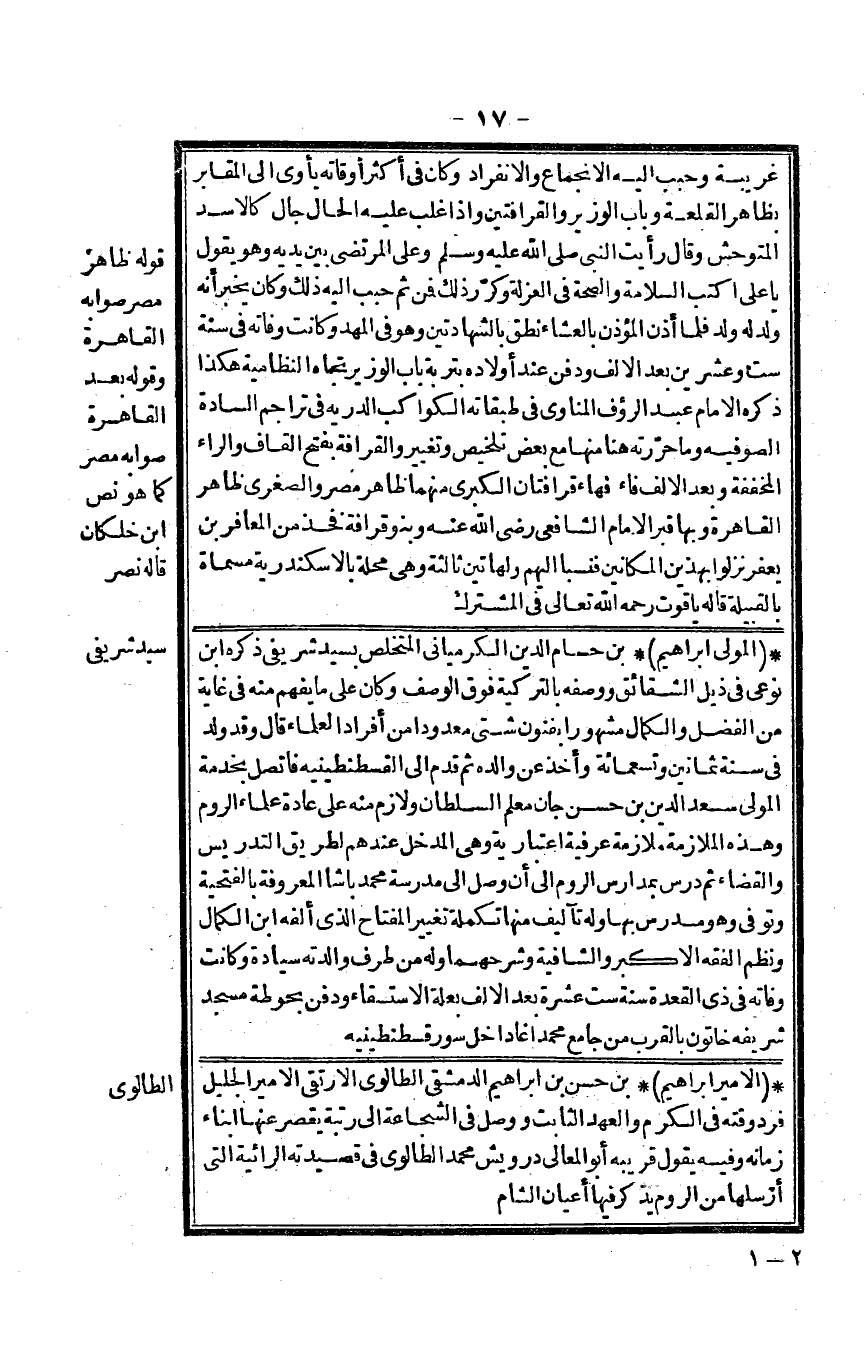 - ١٧ -
غريبة وحبب اليه الانجماع والانفراد وكان فى أكثر أوقاته يأوى الى المقابر
بظاهر القلعة وباب الوزير والقرافتين واذا غلب عليه الحال جال كالاسد
المتوحش وقال رأيت النبى صلى الله عليه وسلم وعلى المرتضى بين يديه وهو يقول
يا على اكتب السلامة والصحة فى العزلة وكرّر ذلك فمن ثم حبب اليه ذلك وكان يخبر أنه
ولد له ولد فلما أذن المؤذن بالعشاء نطق بالشهادتين وهو فى المهد وكانت وفاته فى سنة
ست وعشرين بعد الالف ودفن عند أولاده بتربة باب الوزير تجاه النظامية هكذا
ذكره الامام عبد الرؤف المناوى فى طبقاته الكواكب الدريه فى تراجم السادة
الصوفيه وما حرّرته هنا منها مع بعض تلخيص وتغيير والقرافة بفتح القاف والراء
المخففة وبعد الالف فاء فهاء قرافتان الكبرى منهما ظاهر مصر والصغرى ظاهر
القاهرة وبها قبر الامام الشافعى رضى الله عنه وبنو قرافة فخذ من المعافر بن
يعفر نزلوا بهذين المكانين فنسبا اليهم ولهاتين ثالثة وهى محلة بالاسكندرية مسماة
بالقبيلة قاله ياقوت رحمه الله تعالى فى المشترك
قوله ظاهر
مصر صوابه
القاهرة
وقوله بعد
القاهرة
صوابه مصر
كما هو نص
ابن خلكان
قاله نصر
*(المولى ابراهيم)* بن حسام الدين الكرميانى المتخلص بسيد شريفى ذكره ابن
نوعى فى ذيل الشقائق ووصفه بالتركية فوق الوصف وكان على ما يفهم منه فى غاية
من الفضل والكمال مشهورا بفنون شتى معدودا من أفراد العلماء قال وقد ولد
فى سنة ثمانين وتسعمائة وأخذ عن والده ثم قدم الى القسطنطينيه فاتصل بخدمة
المولى سعد الدين بن حسن جان معلم السلطان ولازم منه على عادة علماء الروم
وهذه الملازمة ملازمة عرفية اعتبارية وهى المدخل عندهم لطريق التدريس
والقضاء ثم درس بمدارس الروم الى أن وصل الى مدرسة محمد باشا المعروفة بالفتحية
وتوفى وهو مدرس بها وله تآليف منها تكملة تغيير المفتاح الذى ألفه ابن الكمال
ونظم الفقه الاكبر والشافية وشرحهما وله من طرف والدته سيادة وكانت
وفاته فى ذى القعدة سنة ست عشرة بعد الالف بعلة الاستسقاء ودفن بحوطة مسجد
شريفه خاتون بالقرب من جامع محمد اغا داخل سور قسطنطينيه
سيد شريفى
*(الامير ابراهيم)* بن حسن بن ابراهيم الدمشقى الطالوى الارتقى الامير الجليل
فرد وقته فى الكرم والعهد الثابت ووصل فى الشجاعة الى رتبة يقصر عنها ابناء
زمانه وفيه يقول قريبه أبو المعالى درويش محمد الطالوى فى قصيدته الرائية التى
أرسلها من الروم يذكر فيها أعيان الشام
الطالوى
٢ - ١